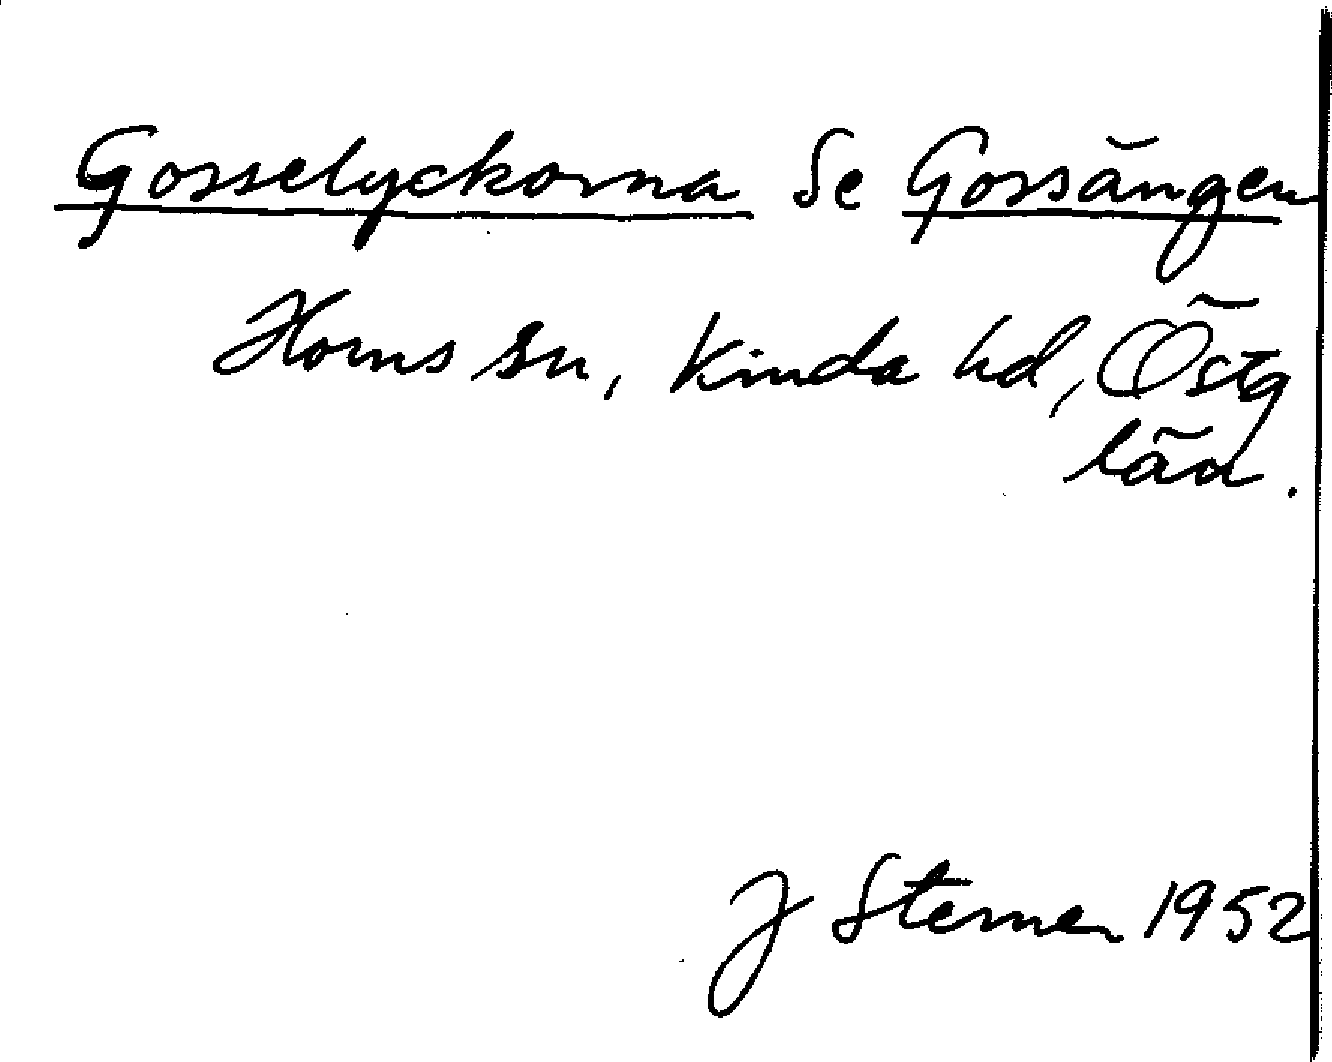 Gosselyckorna Se Gossängen
Horns sn, Kinda hd, Östg
län.
J Sterner 1952